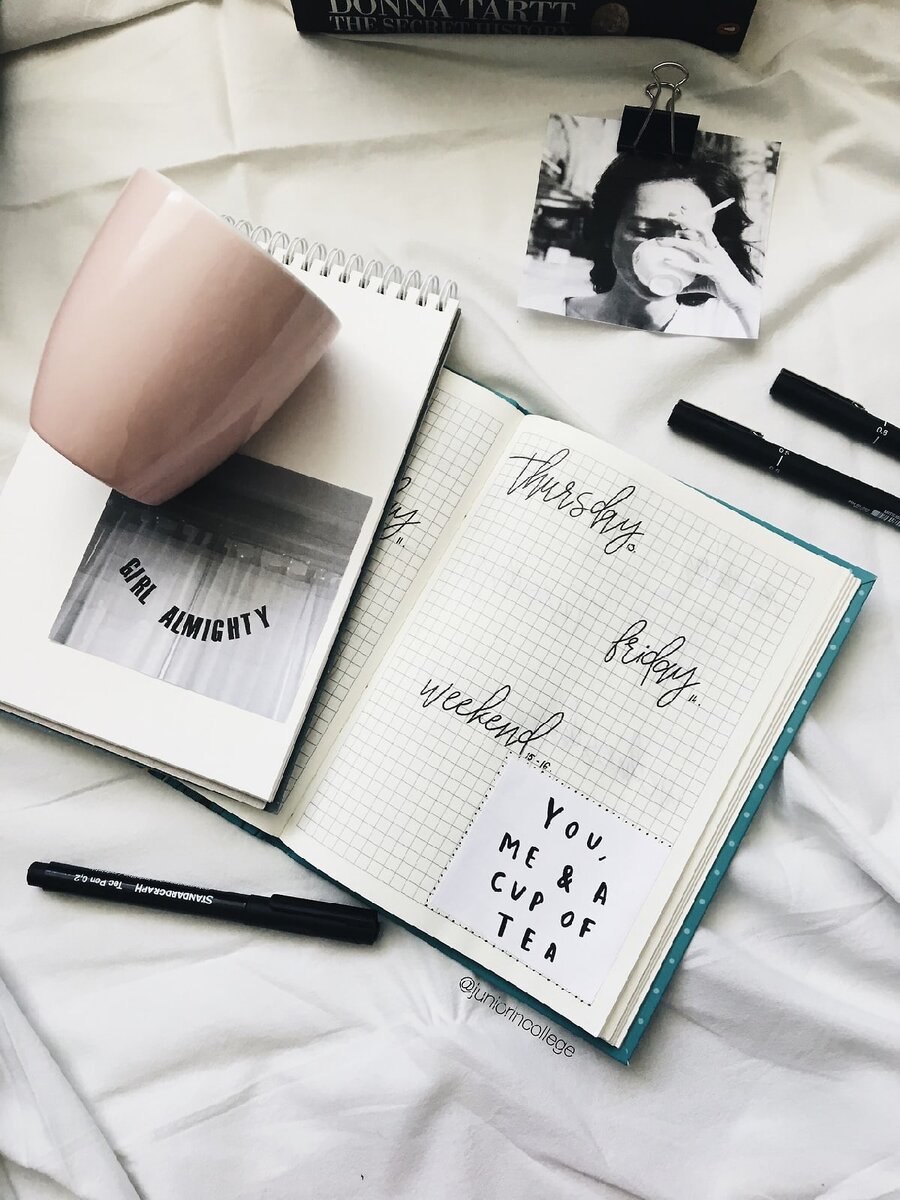 DONNA TARTT
THE SECRET HISTORY
GIRL ALMIGHTY
y
11.
thursday
13.
friday
14.
weekend
15-16
YOU,
ME & A
CUP OF
TEA
STANDARDGRAPH Tec Pen 0,2
0.5
0.8
@juniorincollege